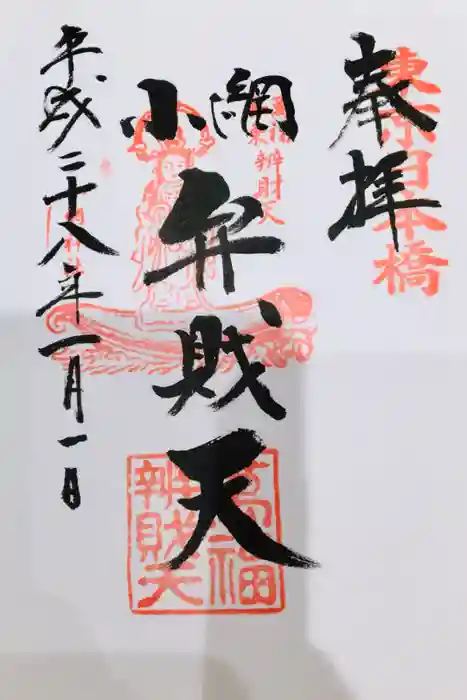 奉拝
東京日本橋
小網
弁財天
萬福
辨財天
平成二十八年一月一日